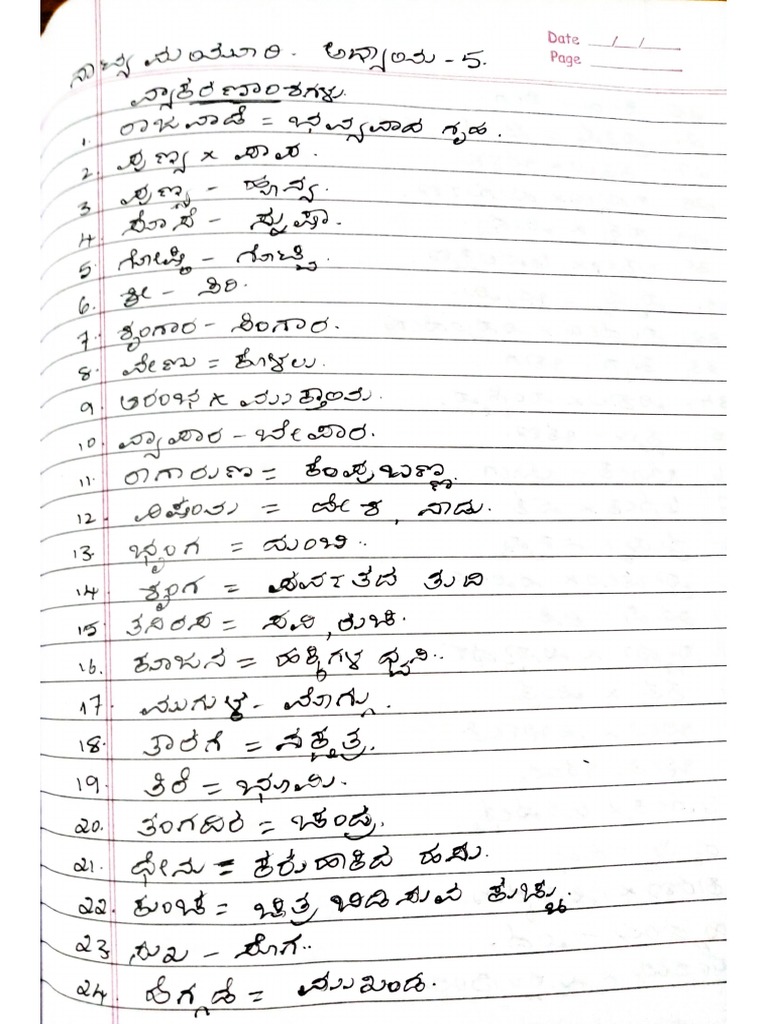 Date / /
Page
ನಾಟ್ಯ ಮಯೂರಿ. ಅಧ್ಯಾಯ - 5.
ವ್ಯಾಕರಣಾಂಶಗಳು.
1. ರಾಜವಾಡೆ = ಭವ್ಯವಾದ ಗೃಹ.
2. ಪುಣ್ಯ × ಪಾಪ.
3 ಪುಣ್ಯ - ಹೂನ್ಯ.
4. ಸೊಸೆ - ಸ್ನುಷಾ.
5. ಗೋಷ್ಠಿ - ಗೊಟ್ಟಿ.
6. ಶ್ರೀ - ಸಿರಿ.
7. ಶೃಂಗಾರ - ಸಿಂಗಾರ.
8. ವೇಣು = ಕೊಳಲು.
9. ಆರಂಭ × ಮುಕ್ತಾಯ.
10. ವ್ಯಾಪಾರ - ಬೇಪಾರ.
11. ರಾಗಾರುಣ = ಕೆಂಪುಬಣ್ಣ.
12. ವಿಷಯ = ದೇಶ, ನಾಡು.
13. ಭೃಂಗ = ದುಂಬಿ.
14. ಶೃಂಗ = ಪರ್ವತದ ತುದಿ
15. ತನಿರಸ = ಸವಿ, ರುಚಿ.
16. ಕೂಜನ = ಹಕ್ಕಿಗಳ ಧ್ವನಿ.
17. ಮುಗುಳ್ - ಮೊಗ್ಗು.
18. ತಾರಗೆ = ನಕ್ಷತ್ರ.
19. ತಿರೆ = ಭೂಮಿ.
20. ತಂಗದಿರ = ಚಂದ್ರ.
21. ಧೇನು = ಕರುಹಾಕಿದ ಹಸು.
22. ಕುಂಚ = ಚಿತ್ರ ಬಿಡಿಸುವ ಕುಚ್ಚು.
23. ಸುಖ - ಸೊಗ.
24. ಹೆಗ್ಗಡೆ = ಮುಖಂಡ.